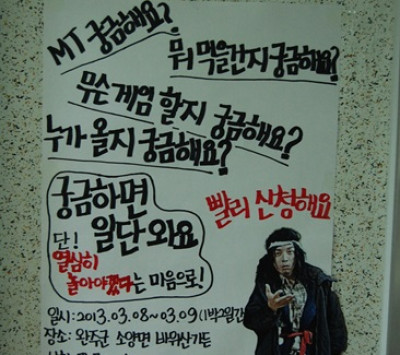 MT 궁금해요?
뭐 먹을건지 궁금해요?
무슨게임 할지 궁금해요?
누가 올지 궁금해요?
궁금하면
일단 와요
단!
열심히
놀아야겠다는 마음으로!
빨리 신청해요
일시: 2013.03.08~03.09(1박2일간
장소: 완주군 소양면 바위산가든